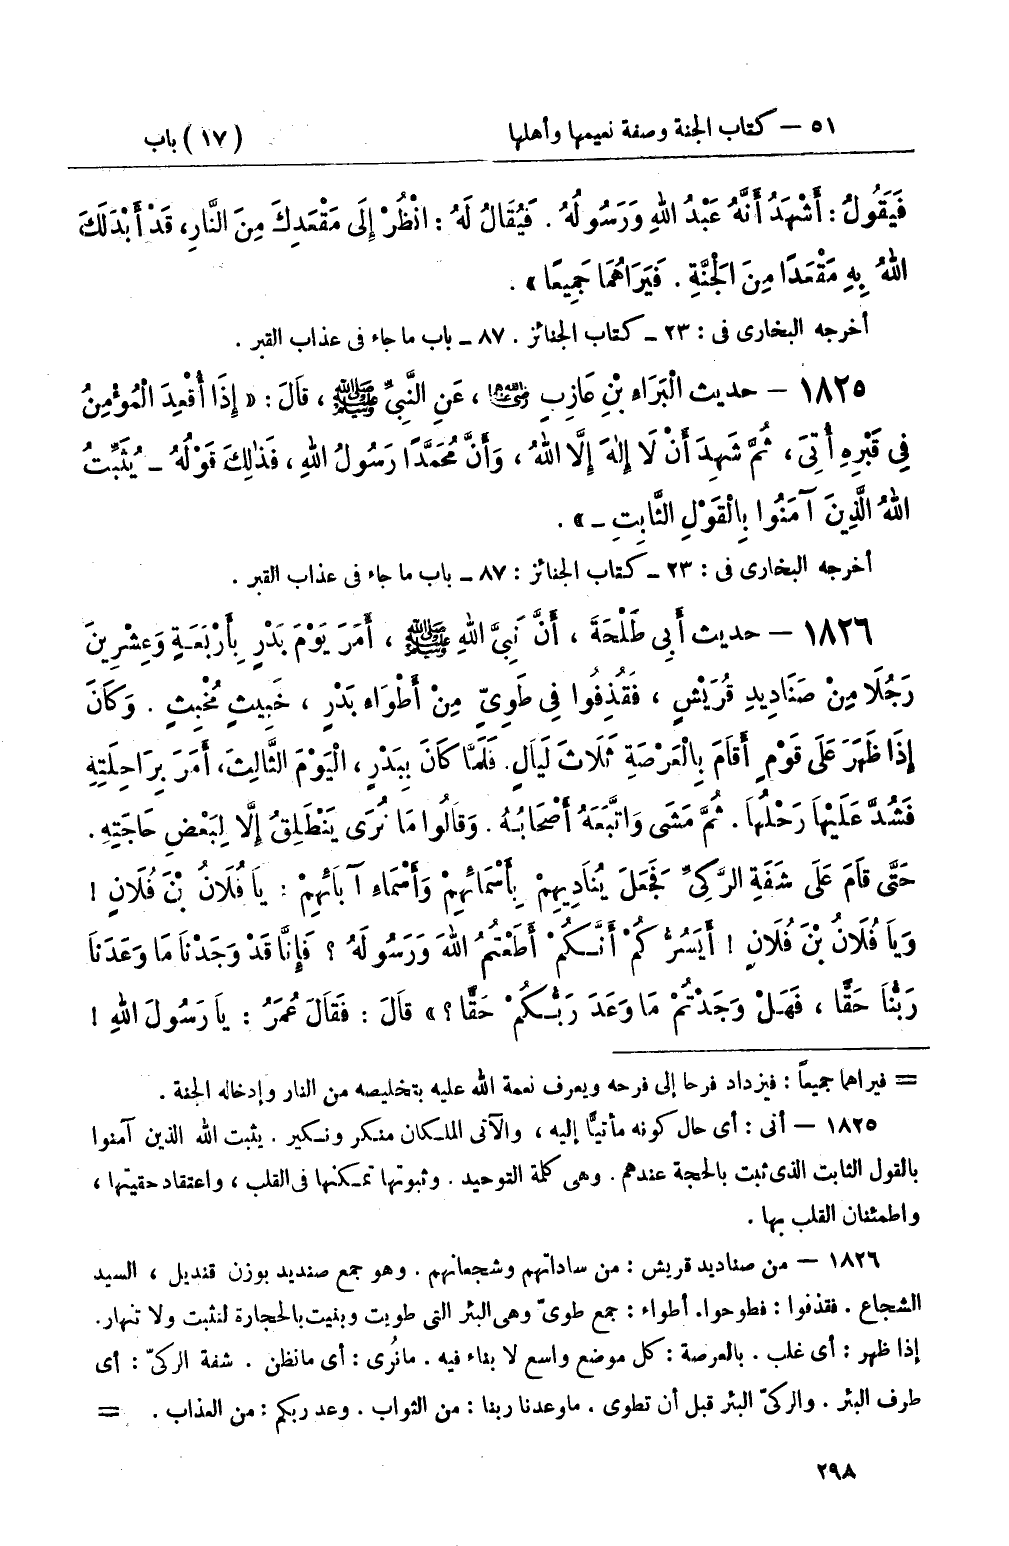 ٥١ – كتاب الجنة وصفة نعيمها وأهلها (١٧) باب
فَيَقُولُ : أَشْهَدُ أَنَّهُ عَبْدُ اللهِ وَرَسُولُهُ . فَيُقَالُ لَهُ : انْظُرْ إِلَى مَقْعَدِكَ مِنَ النَّارِ، قَدْ أَبْدَلَكَ
اللهُ بِهِ مَقْعَدًا مِنَ الْجَنَّةِ . فَيَرَاهُمَا جَمِيعًا » .
أخرجه البخارى فى : ٢٣ ـ كتاب الجنائز . ٨٧ ـ باب ما جاء فى عذاب القبر .
١٨٢٥ – حديث الْبَرَاءِ بْنِ عَازِبٍ رضي الله عنهما ، عَنِ النَّبِيِّ ﷺ ، قَالَ : « إِذَا أُقْعِدَ الْمُؤْمِنُ
فِي قَبْرِهِ أُتِىَ ، ثُمَّ شَهِدَ أَنْ لَا إِلٰهَ إِلَّا اللهُ ، وَأَنَّ مُحَمَّدًا رَسُولُ اللهِ ، فَذٰلِكَ قَوْلُهُ ـ يُثَبِّتُ
اللهُ الَّذِينَ آمَنُوا بِالْقَوْلِ الثَّابِتِ ـ » .
أخرجه البخارى فى : ٢٣ ـ كتاب الجنائز : ٨٧ ـ باب ما جاء فى عذاب القبر .
١٨٢٦ – حديث أَبِي طَلْحَةَ ، أَنَّ نَبِيَّ اللهِ ﷺ ، أَمَرَ يَوْمَ بَدْرٍ بِأَرْبَعَةٍ وَعِشْرِينَ
رَجُلًا مِنْ صَنَادِيدِ قُرَيْشٍ ، فَقُذِفُوا فِي طَوِيٍّ مِنْ أَطْوَاءِ بَدْرٍ ، خَبِيثٍ مُخْبِثٍ . وَكَانَ
إِذَا ظَهَرَ عَلَى قَوْمٍ أَقَامَ بِالْعَرْصَةِ ثَلَاثَ لَيَالٍ. فَلَمَّا كَانَ بِبَدْرٍ ، الْيَوْمَ الثَّالِثَ، أَمَرَ بِرَاحِلَتِهِ
فَشُدَّ عَلَيْهَا رَحْلُهَا . ثُمَّ مَشَى وَاتَّبَعَهُ أَصْحَابُهُ . وَقَالُوا مَا نُرَى يَنْطَلِقُ إِلَّا لِبَعْضِ حَاجَتِهِ .
حَتَّى قَامَ عَلَى شَفَةِ الرَّكِيِّ فَجَعَلَ يُنَادِيهِمْ بِأَسْمَائِهِمْ وَأَسْمَاءِ آبَائِهِمْ : يَا فُلَانُ بْنَ فُلَانٍ !
وَيَا فُلَانُ بْنَ فُلَانٍ ! أَيَسُرُّكُمْ أَنَّكُمْ أَطَعْتُمُ اللهَ وَرَسُولَهُ ؟ فَإِنَّا قَدْ وَجَدْنَا مَا وَعَدَنَا
رَبُّنَا حَقًّا ، فَهَلْ وَجَدْتُمْ مَا وَعَدَ رَبُّكُمْ حَقًّا ؟ » قَالَ : فَقَالَ عُمَرُ : يَا رَسُولَ اللهِ !
= فيراهما جميعاً : فيزداد فرحا إلى فرحه ويعرف نعمة الله عليه بتخليصه من النار وإدخاله الجنة .
١٨٢٥ – أتى : أى حال كونه مأتيًّا إليه ، والآتى الملكان منكر ونكير . يثبت الله الذين آمنوا
بالقول الثابت الذى ثبت بالحجة عندهم . وهى كلمة التوحيد . وثبوتها تمكنها فى القلب ، واعتقاد حقيتها ،
واطمئنان القلب بها .
١٨٢٦ – من صناديد قريش : من ساداتهم وشجعانهم . وهو جمع صنديد بوزن قنديل ، السيد
الشجاع . فقذفوا : فطوحوا. أطواء : جمع طوىّ وهى البئر التى طويت وبنيت بالحجارة لتثبت ولا تنهار.
إذا ظهر : أى غلب . بالعرصة : كل موضع واسع لا بناء فيه . مانُرى : أى مانظن . شفة الركىّ : أى
طرف البئر . والركىّ البئر قبل أن تطوى . ماوعدنا ربنا : من الثواب . وعد ربكم : من العذاب . =
٢٩٨